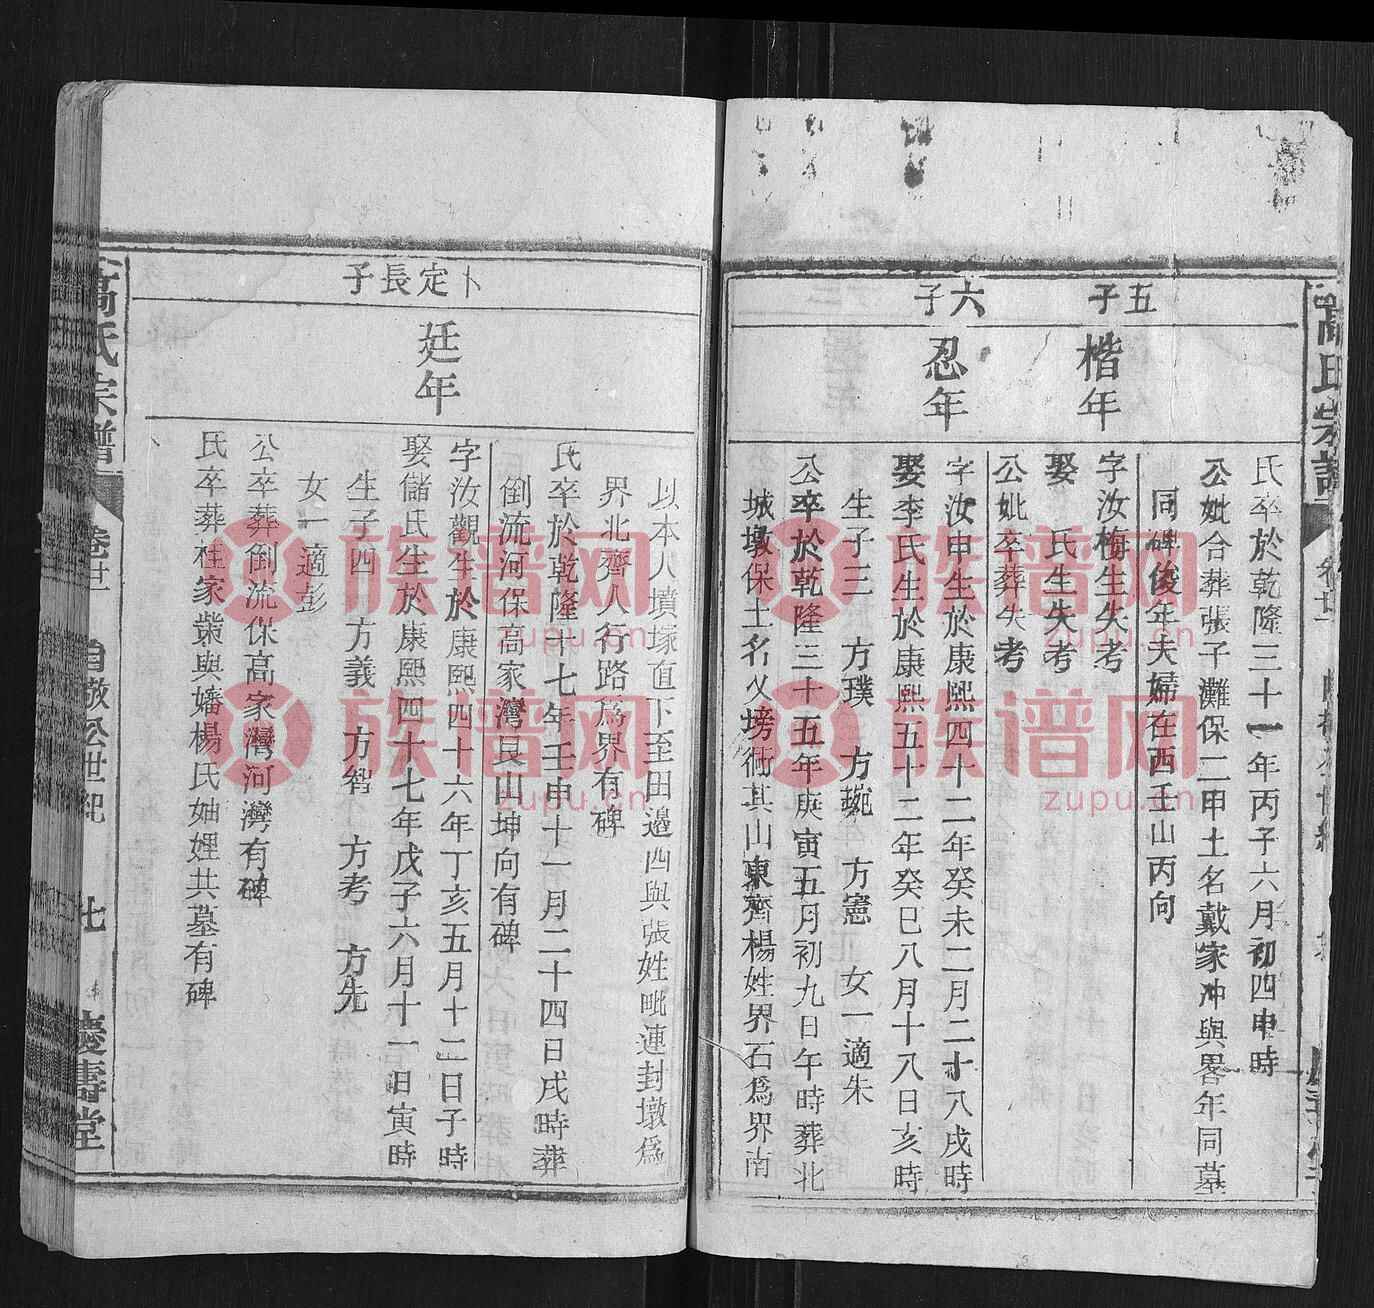 高氏宗譜
五子
楷年
六子
忍年
氏卒於乾隆三十一年丙子六月初四申時
公妣合葬張子灘保二甲土名戴家冲與畧年同墓
同碑俊年夫婦在西壬山丙向
字汝梅生失考
娶　氏生失考
公妣卒葬失考
字汝申生於康熙四十二年癸未二月二十八戌時
娶李氏生於康熙五十二年癸巳八月十八日亥時
生子三　方璞　方琬　方憲　女一適朱
公卒於乾隆三十五年庚寅五月初九日午時葬北
城墩保土名父塝衕其山東齊楊姓界石爲界南
以本人墳塚直下至田邉西與張姓毗連封墩爲
界北齊人行路爲界有碑
氏卒於乾隆十七年壬申十一月二十四日戌時葬
倒流河保高家灣艮山坤向有碑
卜定長子
廷年
字汝觀生於康熙四十六年丁亥五月十二日子時
娶儲氏生於康熙四十七年戊子六月十一日寅時
生子四　方義　方智　方考　方先
女一適彭
公卒葬倒流保高家灣河灣有碑
氏卒葬在家業與嬸楊氏妯娌共墓有碑
高氏宗譜
卷廿一
自敬公世紀
七
慶壽堂
族谱网
zupu.cn
族谱网
zupu.cn
族谱网
zupu.cn
族谱网
zupu.cn